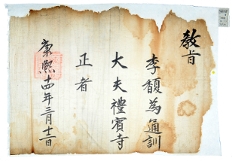 教旨
李馥為通訓
大夫禮賓寺
正者
康熙十四年三月十二日